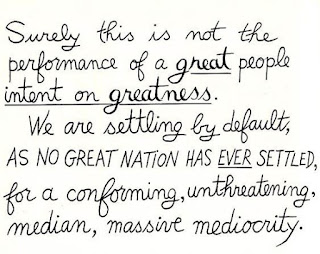 Surely this is not the
performance of a great people
intent on greatness.
We are settling by default,
AS NO GREAT NATION HAS EVER SETTLED,
for a conforming, unthreatening,
median, massive mediocrity.